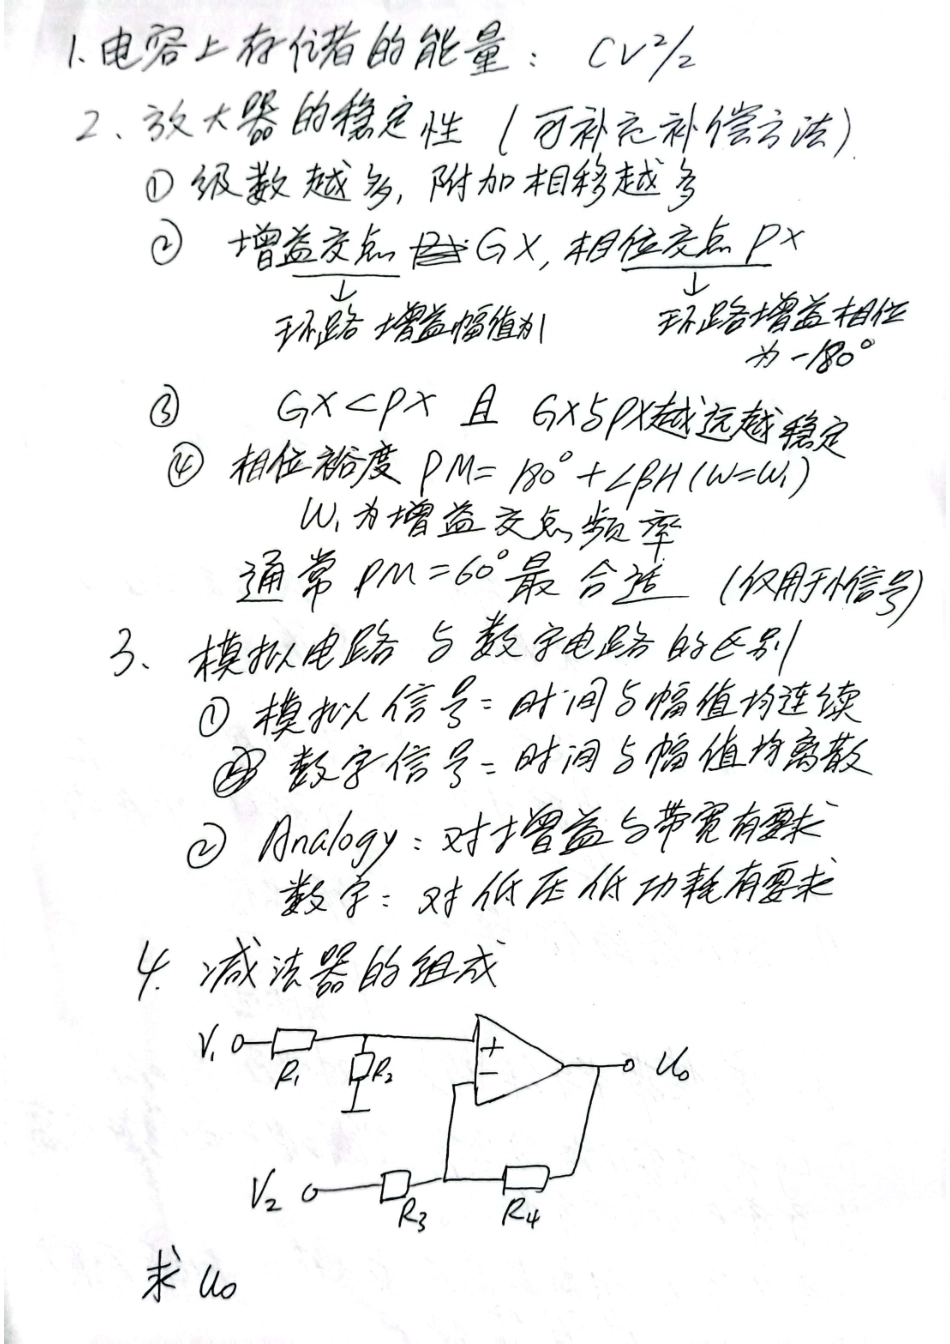 1.电容上存储着的能量: CV²/2
2、放大器的稳定性 (可补充补偿方法)
① 级数越多,附加相移越多
② 增益交点 GX,相位交点 PX
↓ ↓
环路增益幅值为1 环路增益相位
为-180°
③ GX<PX 且 GX与PX越远越稳定
④ 相位裕度 PM=180°+∠βH(W=W₁)
W₁为增益交点频率
通常 PM=60°最合适 (仅用于小信号)
3、模拟电路与数字电路的区别
① 模拟信号:时间与幅值均连续
数字信号:时间与幅值均离散
② Analogy:对增益与带宽有要求
数字:对低压低功耗有要求
4. 减法器的组成
V₁ + U₀
R₁ R₂ −
V₂ R₃ R₄
求 U₀